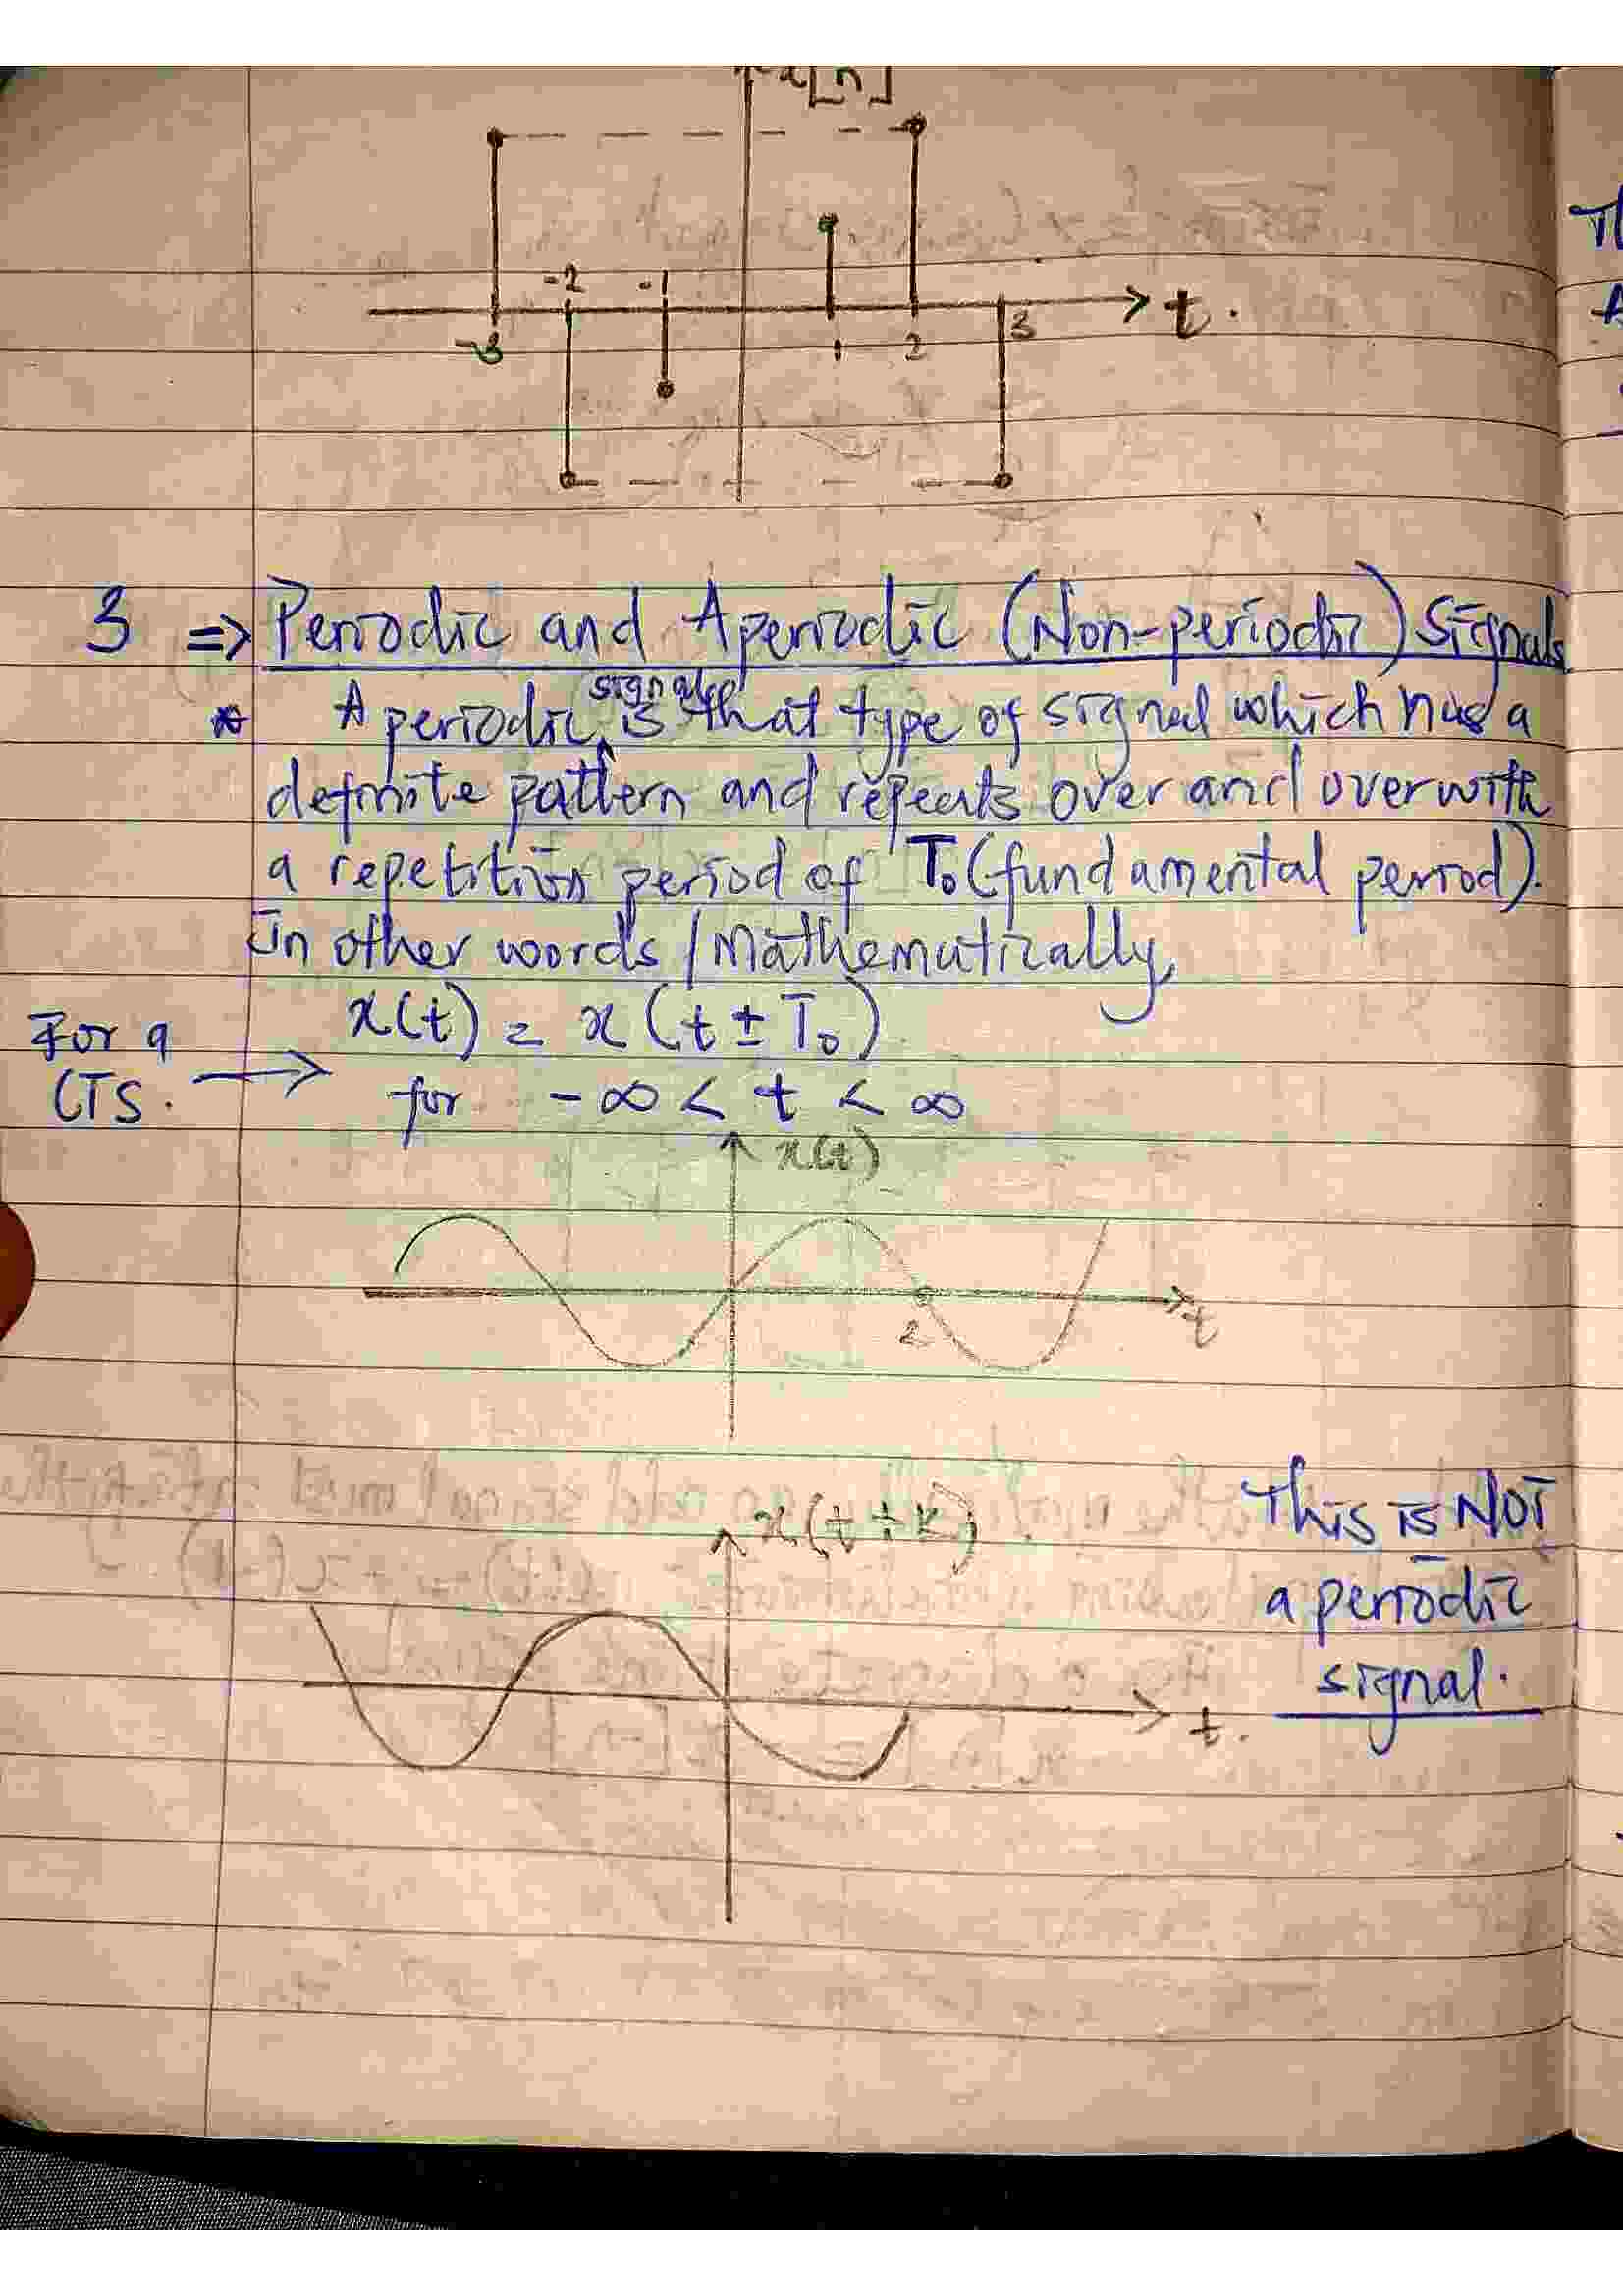 x[n]
-2 -1
t.
-3 1 2 3
3 => Periodic and Aperiodic (Non-periodic) Signals
signal
* A periodic ^ is that type of signal which has a
definite pattern and repeats over and over with
a repetition period of T₀ (fundamental period).
In other words / Mathematically,
x(t) = x(t ± T₀)
For a
CTS. →
for -∞ < t < ∞
x(t)
2
t
x(t+k)
This is NOT
a periodic
signal.
t.